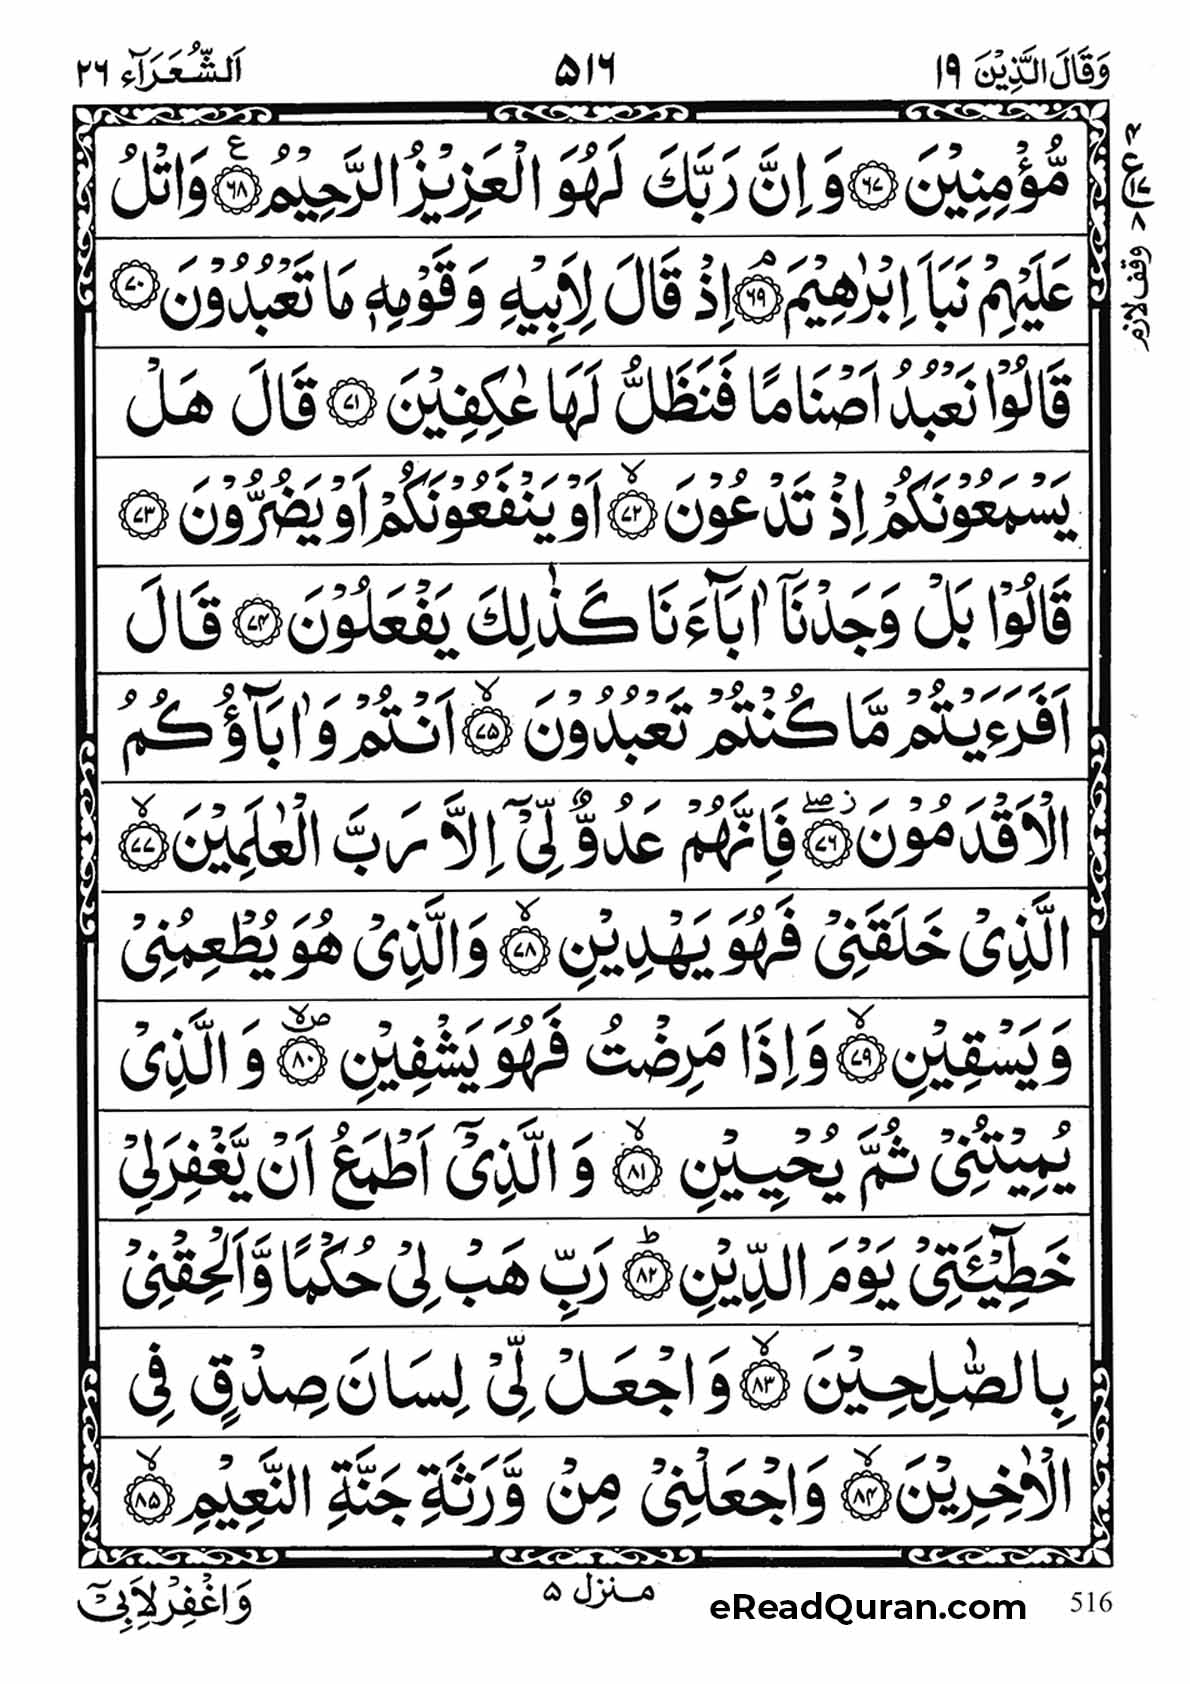 وَقَالَ الَّذِيْنَ ١٩
٥١٦
اَلشُّعَرَآء ٢٦
مُّؤْمِنِيْنَ ﴿٦٧﴾ وَاِنَّ رَبَّكَ لَهُوَ الْعَزِيْزُ الرَّحِيْمُ ﴿٦٨﴾ ع وَاتْلُ
عَلَيْهِمْ نَبَاَ اِبْرٰهِيْمَ ﴿٦٩﴾ ۘ اِذْ قَالَ لِاَبِيْهِ وَقَوْمِهٖ مَا تَعْبُدُوْنَ ﴿٧٠﴾
قَالُوْا نَعْبُدُ اَصْنَامًا فَنَظَلُّ لَهَا عٰكِفِيْنَ ﴿٧١﴾ قَالَ هَلْ
يَسْمَعُوْنَكُمْ اِذْ تَدْعُوْنَ ﴿٧٢﴾ ۙ اَوْ يَنْفَعُوْنَكُمْ اَوْ يَضُرُّوْنَ ﴿٧٣﴾
قَالُوْا بَلْ وَجَدْنَاۤ اٰبَآءَنَا كَذٰلِكَ يَفْعَلُوْنَ ﴿٧٤﴾ قَالَ
اَفَرَءَيْتُمْ مَّا كُنْتُمْ تَعْبُدُوْنَ ﴿٧٥﴾ ۙ اَنْتُمْ وَاٰبَآؤُكُمُ
الْاَقْدَمُوْنَ ﴿٧٦﴾ ز صلے فَاِنَّهُمْ عَدُوٌّ لِّيْۤ اِلَّا رَبَّ الْعٰلَمِيْنَ ﴿٧٧﴾ ۙ
الَّذِيْ خَلَقَنِيْ فَهُوَ يَهْدِيْنِ ﴿٧٨﴾ ۙ وَالَّذِيْ هُوَ يُطْعِمُنِيْ
وَيَسْقِيْنِ ﴿٧٩﴾ ۙ وَاِذَا مَرِضْتُ فَهُوَ يَشْفِيْنِ ﴿٨٠﴾ ص لا وَالَّذِيْ
يُمِيْتُنِيْ ثُمَّ يُحْيِيْنِ ﴿٨١﴾ ۙ وَالَّذِيْۤ اَطْمَعُ اَنْ يَّغْفِرَ لِيْ
خَطِيْٓـَٔتِيْ يَوْمَ الدِّيْنِ ﴿٨٢﴾ ؕ رَبِّ هَبْ لِيْ حُكْمًا وَّاَلْحِقْنِيْ
بِالصّٰلِحِيْنَ ﴿٨٣﴾ ۙ وَاجْعَلْ لِّيْ لِسَانَ صِدْقٍ فِي
الْاٰخِرِيْنَ ﴿٨٤﴾ ۙ وَاجْعَلْنِيْ مِنْ وَّرَثَةِ جَنَّةِ النَّعِيْمِ ﴿٨٥﴾ ۙ
ع
١٧
٨
وقف لازم
516
eReadQuran.com
منزل ۵
وَاغْفِرْ لِاَبِيْۤ